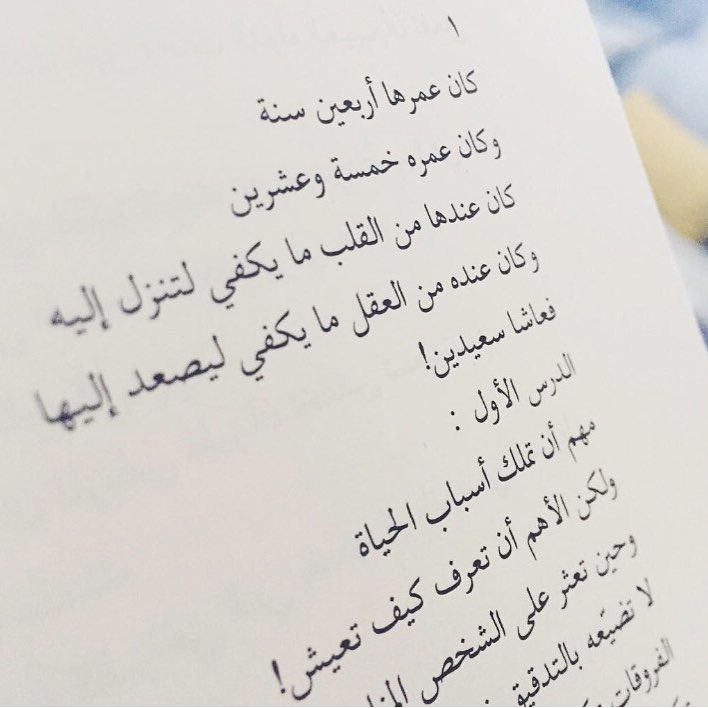 ١
كان عمرها أربعين سنة
وكان عمره خمسة وعشرين
كان عندها من القلب ما يكفي لتنزل إليه
وكان عنده من العقل ما يكفي ليصعد إليها
فعاشا سعيدين!
الدرس الأول :
مهم أن تملك أسباب الحياة
ولكن الأهم أن تعرف كيف تعيش!
وحين تعثر على الشخص
لا تضيّعه بالتدقيق
الفروقات